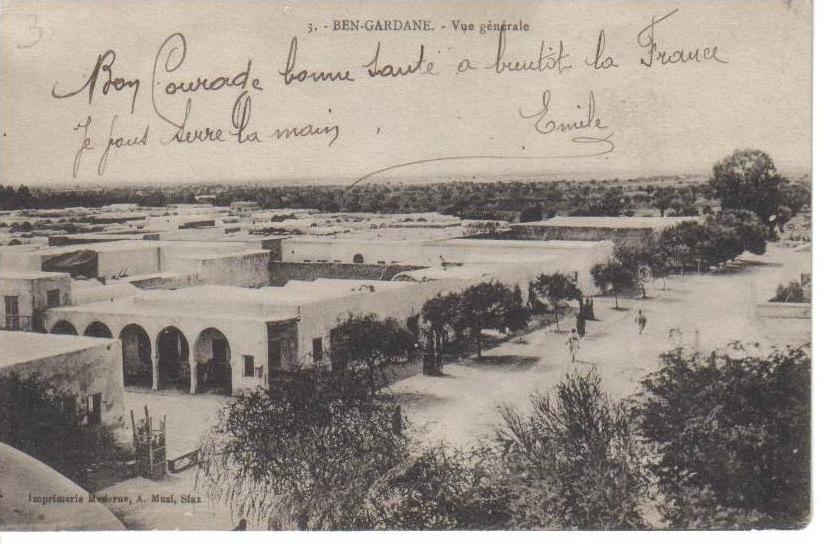 3
3. - BEN-GARDANE. - Vue générale
Bon Courade bonne santé a bientôt la France
Je vous serre la main, Emile
Imprimerie Moderne, A. Muzi, Sfax